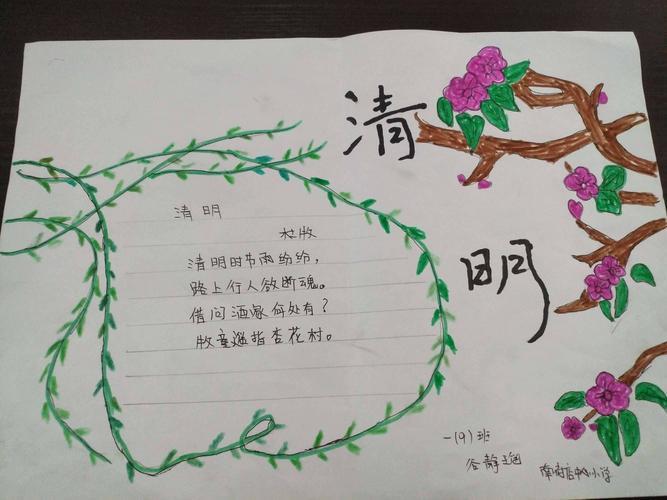 清明
清明
杜牧
清明时节雨纷纷，
路上行人欲断魂。
借问酒家何处有？
牧童遥指杏花村。
一(9)班
谷静
中心小学